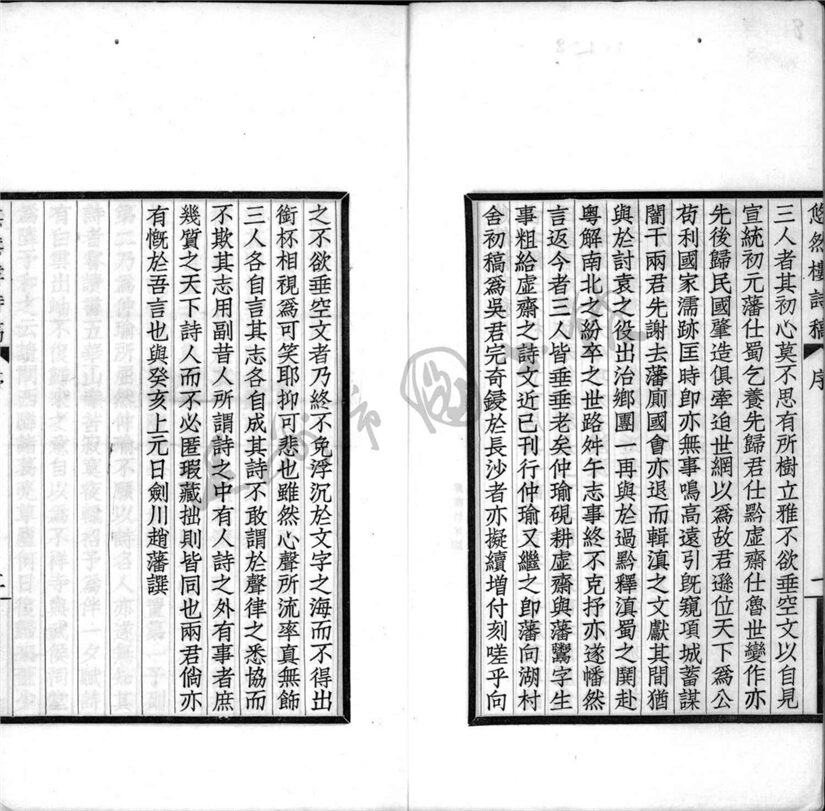 悠然樓詩稿 序 一
三人者其初心莫不思有所樹立雅不欲垂空文以自見
宣統初元藩仕蜀乞養先歸君仕黔虛齋仕魯世變作亦
先後歸民國肇造俱牽迫世網以爲故君遜位天下爲公
苟利國家濡跡匡時卽亦無事鳴高遠引旣窺項城蓄謀
闇干兩君先謝去藩廁國會亦退而輯滇之文獻其間猶
與於討袁之役出治鄉團一再與於過黔釋滇蜀之鬨赴
粵解南北之紛卒之世路舛午志事終不克抒亦遂幡然
言返今者三人皆垂垂老矣仲瑜硯耕虛齋與藩鬻字生
事粗給虛齋之詩文近已刊行仲瑜又繼之卽藩向湖村
舍初稿爲吳君完奇鋟於長沙者亦擬續增付刻嗟乎向
之不欲垂空文者乃終不免浮沉於文字之海而不得出
銜杯相視爲可笑耶抑可悲也雖然心聲所流率真無飾
三人各自言其志各自成其詩不敢謂於聲律之悉協而
不欺其志用副昔人所謂詩之中有人詩之外有事者庶
幾質之天下詩人而不必匿瑕藏拙則皆同也兩君倘亦
有慨於吾言也與癸亥上元日劍川趙藩譔